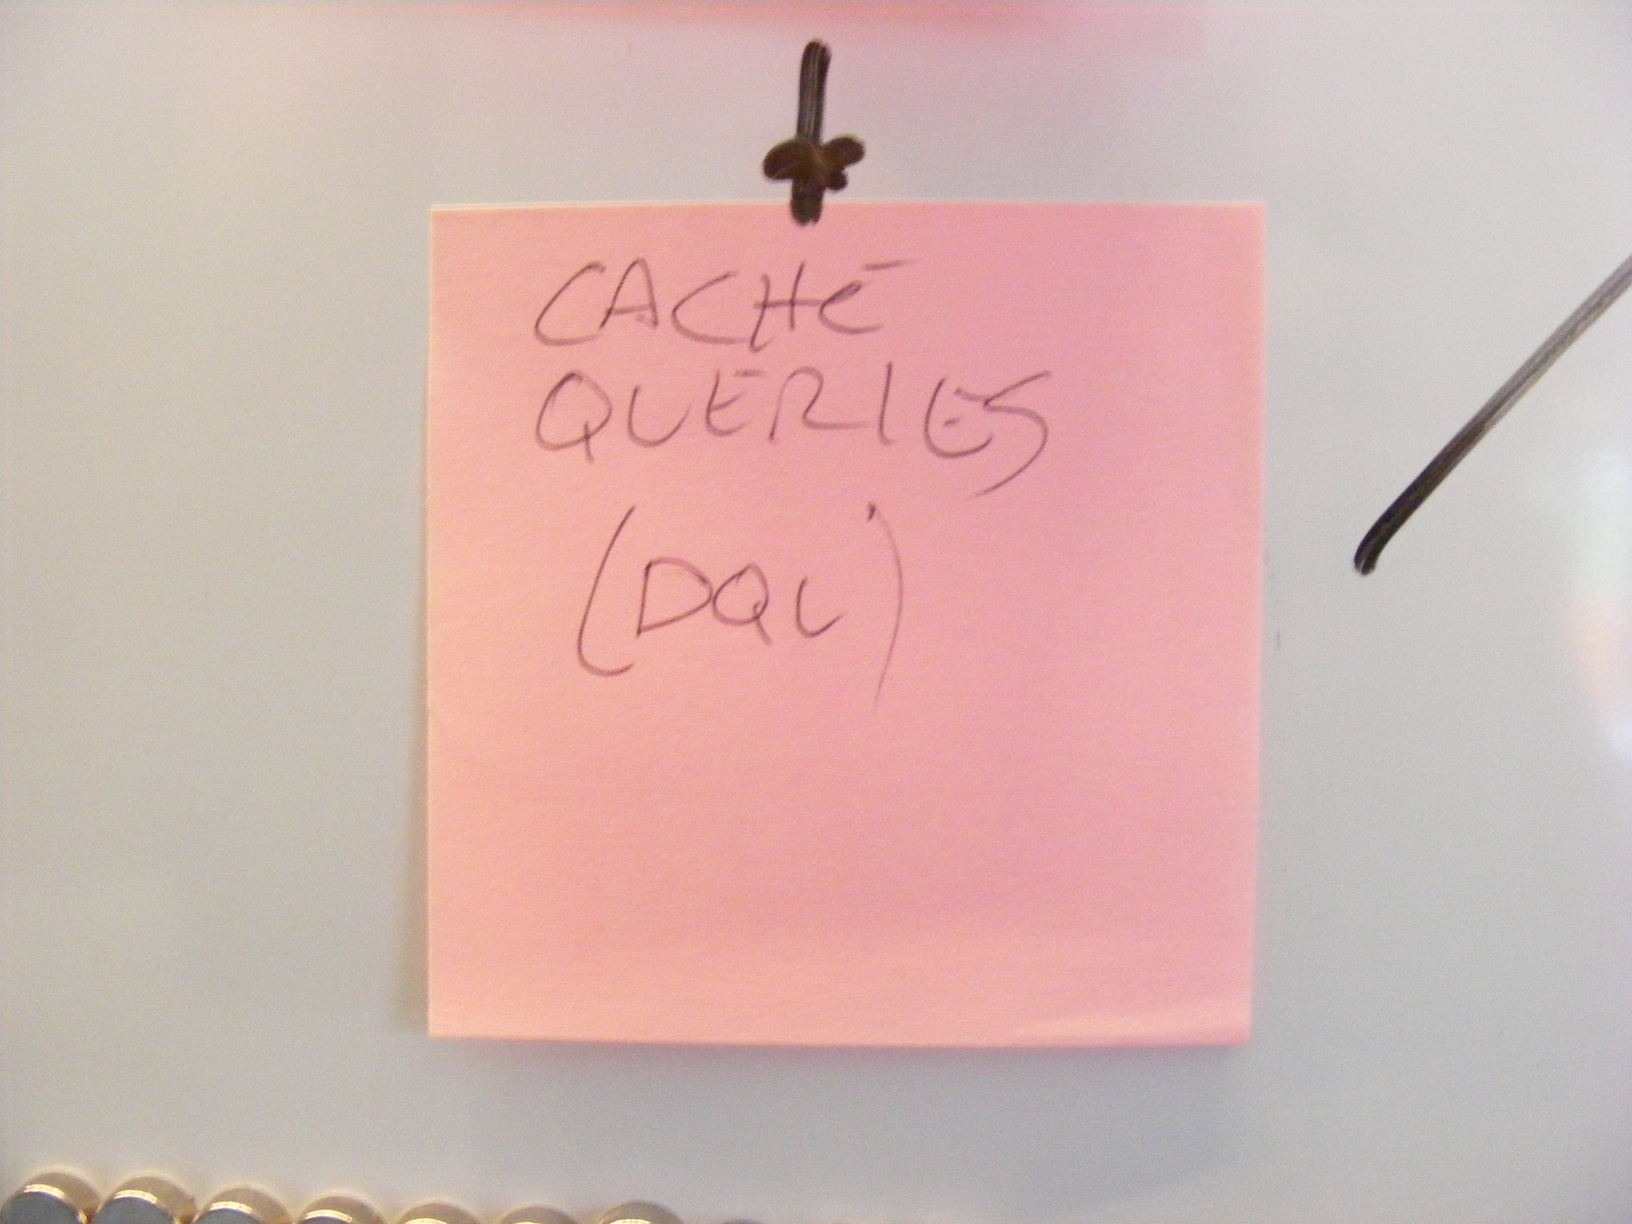 CACHE
QUERIES
(DQL)